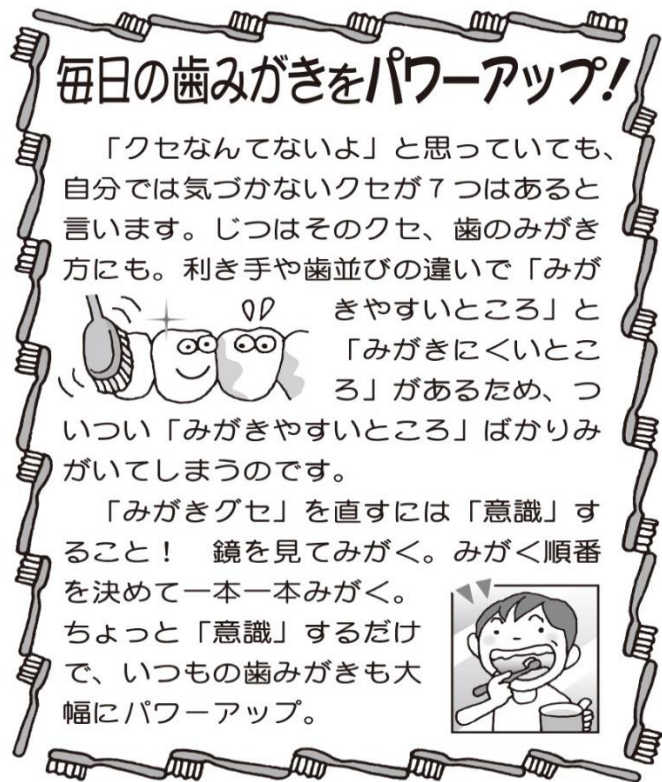 毎日の歯みがきをパワーアップ!
「クセなんてないよ」と思っていても、
自分では気づかないクセが7つはあると
言います。じつはそのクセ、歯のみがき
方にも。利き手や歯並びの違いで「みが
きやすいところ」と
「みがきにくいとこ
ろ」があるため、つ
いつい「みがきやすいところ」ばかりみ
がいてしまうのです。
「みがきグセ」を直すには「意識」す
ること!　鏡を見てみがく。みがく順番
を決めて一本一本みがく。
ちょっと「意識」するだけ
で、いつもの歯みがきも大
幅にパワーアップ。